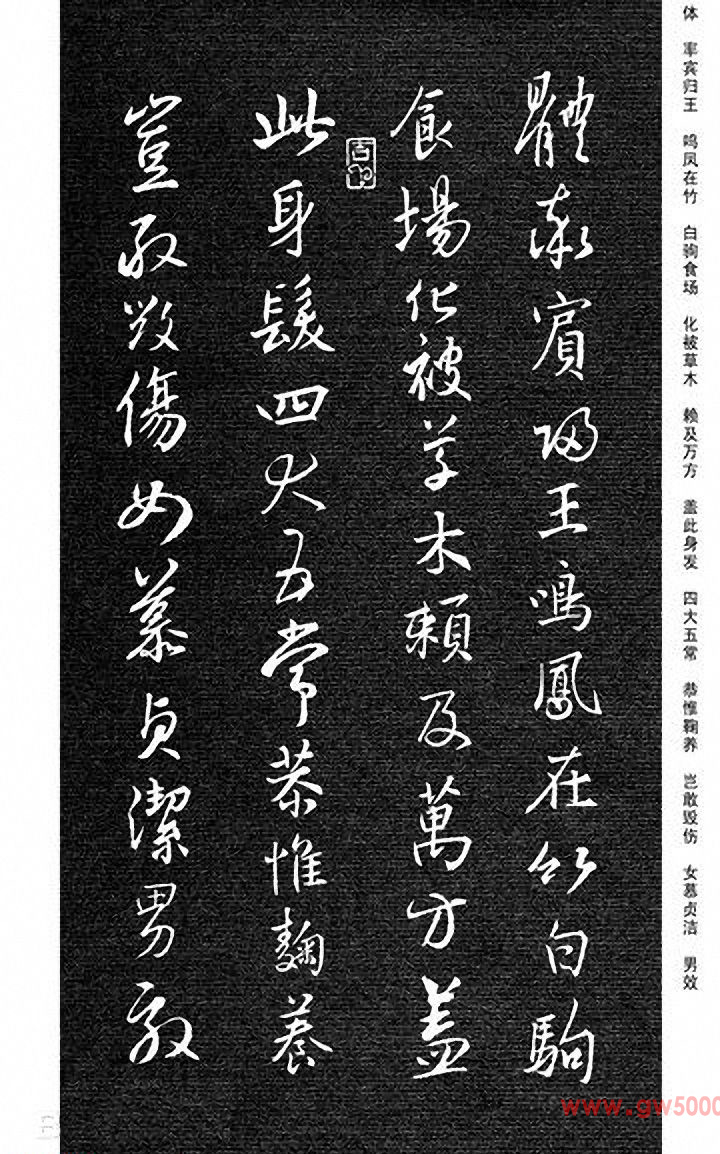 体 率宾归王 鸣凤在竹 白驹食场 化被草木 赖及万方 盖此身发 四大五常 恭惟鞠养 岂敢毁伤 女慕贞洁 男效
體率賓歸王鳴鳳在竹白駒
食場化被草木賴及萬方蓋
此身髮四大五常恭惟鞠養
豈敢毀傷女慕貞潔男效
www.gw5000